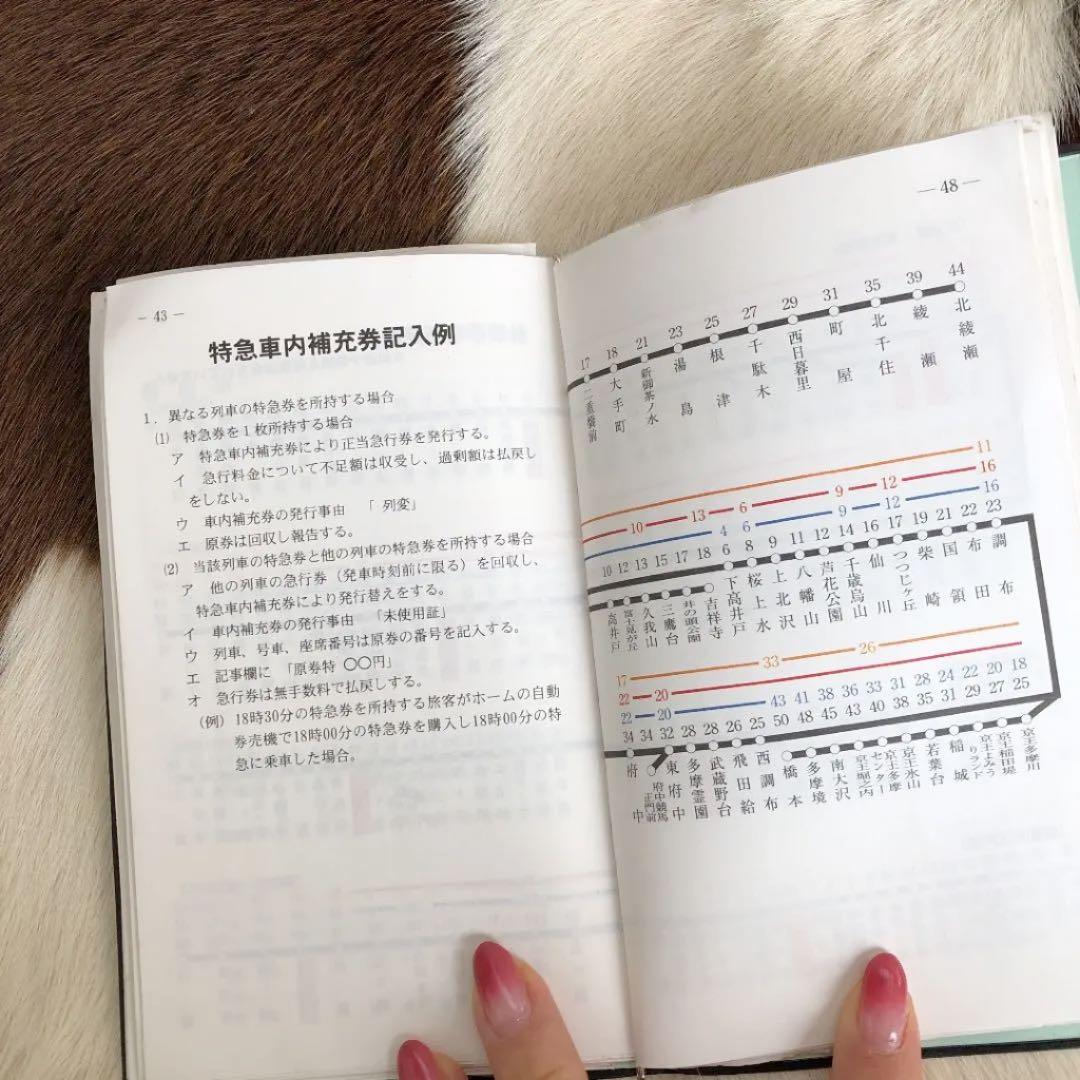 — 43 —
特急車内補充券記入例
1．異なる列車の特急券を所持する場合
(1) 特急券を1枚所持する場合
ア 特急車内補充券により正当急行券を発行する。
イ 急行料金について不足額は収受し、過剰額は払戻し
をしない。
ウ 車内補充券の発行事由 「 列変」
エ 原券は回収し報告する。
(2) 当該列車の特急券と他の列車の特急券を所持する場合
ア 他の列車の急行券（発車時刻前に限る）を回収し、
特急車内補充券により発行替えをする。
イ 車内補充券の発行事由 「未使用証」
ウ 列車、号車、座席番号は原券の番号を記入する。
エ 記事欄に 「原券特 〇〇円」
オ 急行券は無手数料で払戻しする。
（例） 18時30分の特急券を所持する旅客がホームの自動
券売機で18時00分の特急券を購入し18時00分の特
急に乗車した場合。
— 48 —
17 18 21 23 25 27 29 31 35 39 44
二重橋前 大手町 新御茶ノ水 湯島 根津 千駄木 西日暮里 町屋 北千住 綾瀬 北綾瀬
11
10 13 6 9 12 16
4 6 9 12 16
10 12 13 15 17 18 6 8 9 11 12 14 16 17 19 21 22 23
高井戸 富士見が丘 久我山 三鷹台 井の頭公園 吉祥寺 下高井戸 桜上水 上北沢 八幡山 芦花公園 千歳烏山 仙川 つつじヶ丘 柴崎 国領 布田 調布
17 33 26
22 20
22 20 43 41 38 36 33 31 28 24 22 20 18
34 34 32 28 28 26 25 50 48 45 43 40 38 35 31 29 27 25
府中 府中競馬正門前 東府中 多摩霊園 武蔵野台 飛田給 西調布 橋本 多摩境 南大沢 京王堀之内 京王多摩センター 京王永山 若葉台 稲城 京王よみうりランド 京王稲田堤 京王多摩川